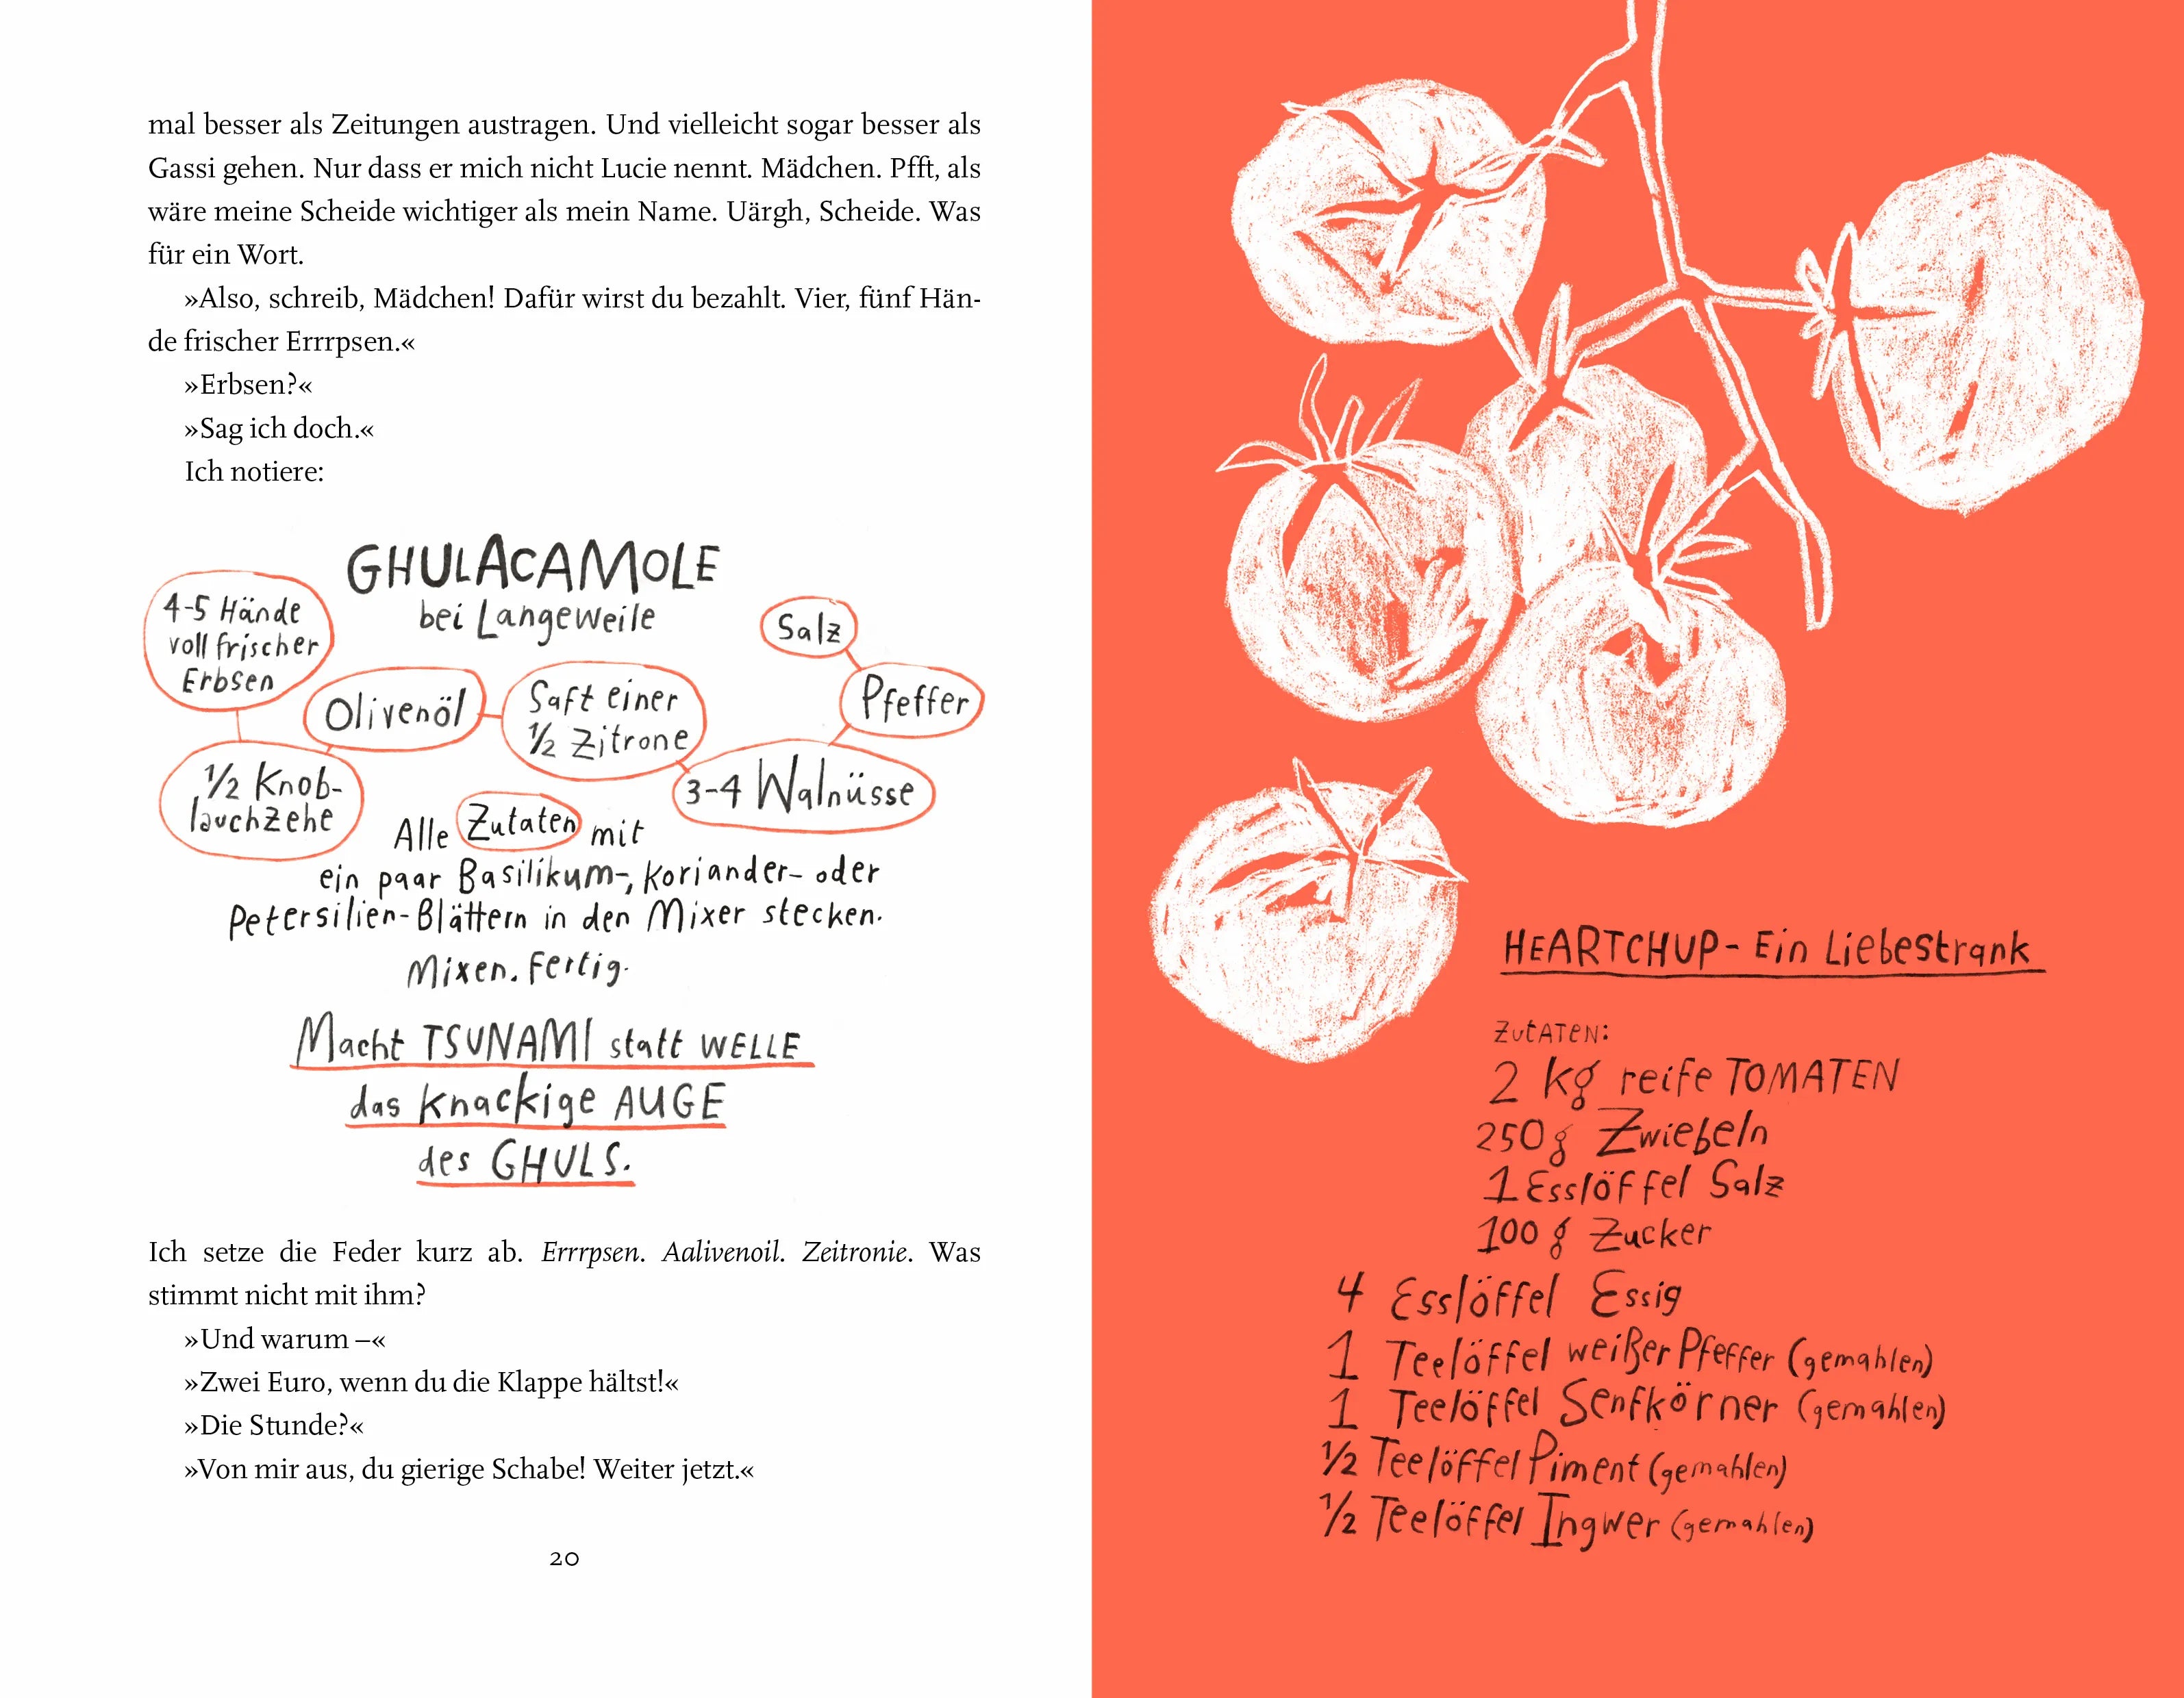 mal besser als Zeitungen austragen. Und vielleicht sogar besser als
Gassi gehen. Nur dass er mich nicht Lucie nennt. Mädchen. Pfft, als
wäre meine Scheide wichtiger als mein Name. Uärgh, Scheide. Was
für ein Wort.
»Also, schreib, Mädchen! Dafür wirst du bezahlt. Vier, fünf Hän-
de frischer Errrpsen.«
»Erbsen?«
»Sag ich doch.«
Ich notiere:
GHULACAMOLE
bei Langeweile
4-5 Hände
voll frischer
Erbsen
½ Knob-
lauchzehe
Olivenöl
Saft einer
½ Zitrone
3-4 Walnüsse
Pfeffer
Salz
Alle Zutaten mit
ein paar Basilikum-, Koriander- oder
Petersilien-Blättern in den Mixer stecken.
Mixen. Fertig.
Macht TSUNAMI statt WELLE
das knackige AUGE
des GHULS.
Ich setze die Feder kurz ab. Errrpsen. Aalivenoil. Zeitronie. Was
stimmt nicht mit ihm?
»Und warum –«
»Zwei Euro, wenn du die Klappe hältst!«
»Die Stunde?«
»Von mir aus, du gierige Schabe! Weiter jetzt.«
20
HEARTCHUP - Ein Liebestrank
ZUTATEN:
2 kg reife TOMATEN
250 g Zwiebeln
1 Esslöffel Salz
100 g Zucker
4 Esslöffel Essig
1 Teelöffel weißer Pfeffer (gemahlen)
1 Teelöffel Senfkörner (gemahlen)
½ Teelöffel Piment (gemahlen)
½ Teelöffel Ingwer (gemahlen)